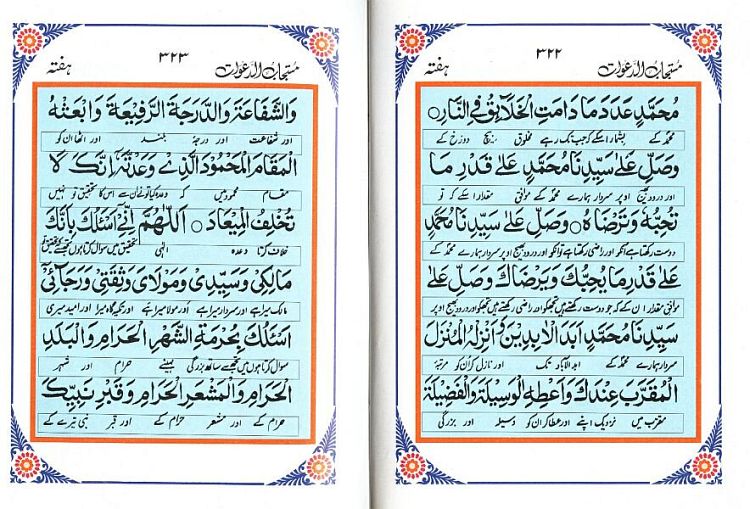 مستجاب الدعوات ٣٢٢ هفته
مُحَمَّدٍ عَدَدَ مَا دَامَتِ الْخَلَآئِقُ فِي النَّارِ ○
محمدؐ کے بشمار اسکے کہ جب تک رہے مخلوق بیچ دوزخ کے
وَصَلِّ عَلٰى سَيِّدِنَا مُحَمَّدٍ عَلٰى قَدْرِ مَا
اور درود بھیج اوپر سردار ہمارے محمدؐ کے موافق مقدار اسکے کہ تو
تُحِبُّهٗ وَتَرْضَاهُ ○ وَصَلِّ عَلٰى سَيِّدِنَا مُحَمَّدٍ
دوست رکھتا ہے انکو اور راضی رکھتا ہے تو انکو اور درود بھیج اوپر سردار ہمارے محمدؐ کے
عَلٰى قَدْرِ مَا يُحِبُّكَ وَيَرْضَاكَ وَصَلِّ عَلٰى
موافق مقدار اس کے کہ جو دوست رکھتے ہیں تجھکو اور راضی رکھتے ہیں تجھکو اور درود بھیج اوپر
سَيِّدِنَا مُحَمَّدٍ اَبَدَ الْاٰبِدِيْنَ وَاَنْزِلْهُ الْمُنْزَلَ
سردار ہمارے محمدؐ کے ابد الآباد تک اور نازل کر ان کو مرتبۂ
الْمُقَرَّبَ عِنْدَكَ وَاَعْطِهِ الْوَسِيْلَةَ وَالْفَضِيْلَةَ
مقرب میں نزدیک اپنے اور عطا کر ان کو وسیلہ اور بزرگی
مستجاب الدعوات ٣٢٣ هفته
وَالشَّفَاعَةَ وَالدَّرَجَةَ الرَّفِيْعَةَ وَابْعَثْهُ
اور شفاعت اور درجۂ بلند اور اٹھا ان کو
الْمَقَامَ الْمَحْمُوْدَ الَّذِيْ وَعَدْتَّهٗ اِنَّكَ لَا
مقام محمود میں کہ وعدہ کیا تونے ان سے اس کا تحقیق تو نہیں
تُخْلِفُ الْمِيْعَادَ ○ اَللّٰهُمَّ اِنِّيْ اَسْئَلُكَ بِاَنَّكَ
خلاف کرتا وعدہ الٰہی تحقیق میں سوال کرتا ہوں تجھسے کہ تحقیق تو
مَالِكِيْ وَسَيِّدِيْ وَمَوْلَايَ وَثِقَتِيْ وَرَجَآئِيْ
مالک میرا ہے اور سردار میرا ہے اور مولا میرا ہے اور تکیہ گاہ میرا اور امید میری
اَسْئَلُكَ بِحُرْمَةِ الشَّهْرِ الْحَرَامِ وَالْبَلَدِ
سوال کرتا ہوں میں تجھسے ساتھ بزرگی مہینے حرام اور شہر
الْحَرَامِ وَالْمَشْعَرِ الْحَرَامِ وَقَبْرِ نَبِيِّكَ
حرام کے اور مشعر حرام کے اور قبر نبی تیرے کے